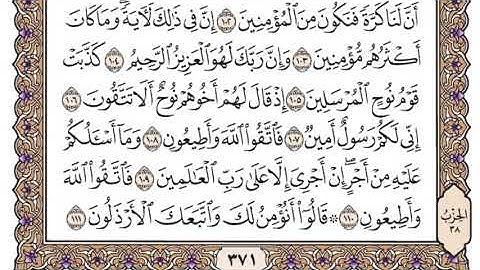 أَنَّ لَنَا كَرَّةً فَنَكُونَ مِنَ ٱلْمُؤْمِنِينَ ١٠٢ إِنَّ فِى ذَٰلِكَ لَءَايَةً ۖ وَمَا كَانَ
أَكْثَرُهُم مُّؤْمِنِينَ ١٠٣ وَإِنَّ رَبَّكَ لَهُوَ ٱلْعَزِيزُ ٱلرَّحِيمُ ١٠٤ كَذَّبَتْ
قَوْمُ نُوحٍ ٱلْمُرْسَلِينَ ١٠٥ إِذْ قَالَ لَهُمْ أَخُوهُمْ نُوحٌ أَلَا تَتَّقُونَ ١٠٦
إِنِّى لَكُمْ رَسُولٌ أَمِينٌ ١٠٧ فَٱتَّقُوا۟ ٱللَّهَ وَأَطِيعُونِ ١٠٨ وَمَآ أَسْـَٔلُكُمْ
عَلَيْهِ مِنْ أَجْرٍ ۖ إِنْ أَجْرِىَ إِلَّا عَلَىٰ رَبِّ ٱلْعَٰلَمِينَ ١٠٩ فَٱتَّقُوا۟ ٱللَّهَ
وَأَطِيعُونِ ١١٠ ۞ قَالُوٓا۟ أَنُؤْمِنُ لَكَ وَٱتَّبَعَكَ ٱلْأَرْذَلُونَ ١١١
الحزب
٣٨
٣٧١